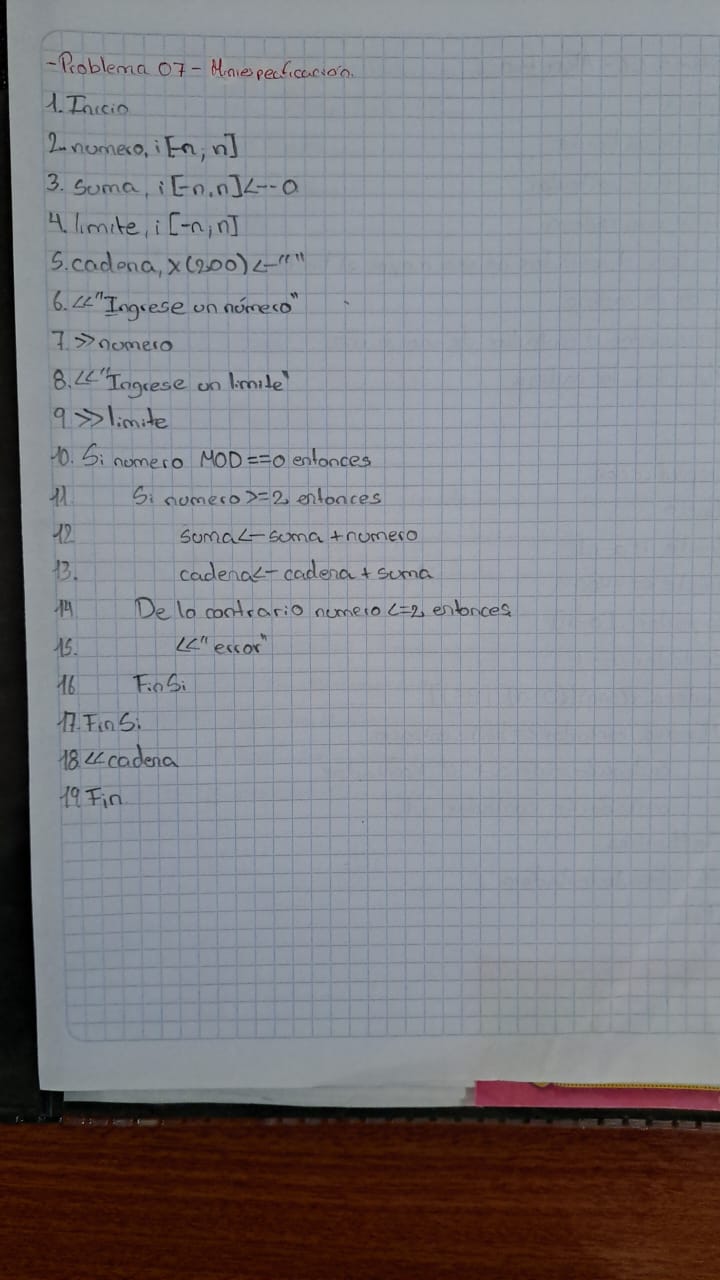 -Problema 07- Miniespecificación.
1. Inicio
2. numero, i [-n; n]
3. suma, i [-n, n] <-- 0
4. limite, i [-n; n]
5. cadena, x(200) <- ""
6. << "Ingrese un número"
7. >> numero
8. << "Ingrese un limite"
9 >> limite
10. Si numero MOD ==0 entonces
11 Si numero >=2 entonces
12 suma <- suma + numero
13. cadena <- cadena + suma
14 De lo contrario numero <=2 entonces
15. << "error"
16 FinSi
17. FinSi
18 << cadena
19 Fin